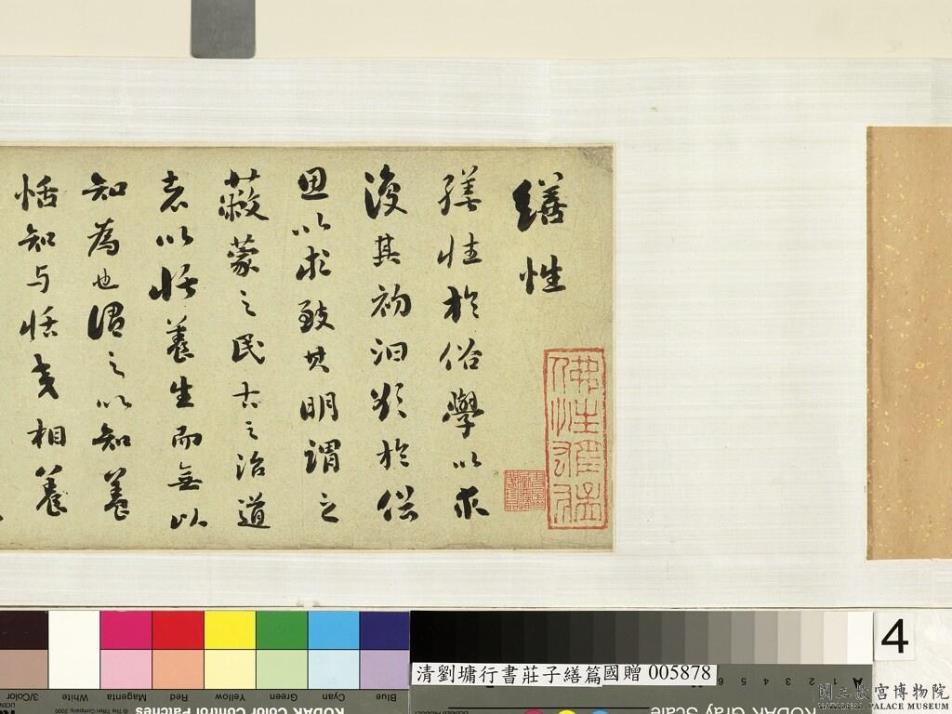 繕性
繕性於俗學以求
復其初汩欲於俗
思以求致其明謂之
蔽蒙之民古之治道
者以恬養生而無以
知為也謂之以知養
恬知与恬交相養
4
清劉墉行書莊子繕篇國贈 005878
Blue Cyan Green Yellow Red Magenta White 3/Color
KODAK Color Control Patches
A 1 2 3 4 5 6
KODAK Gray Scale
國立故宮博物院
NATIONAL PALACE MUSEUM